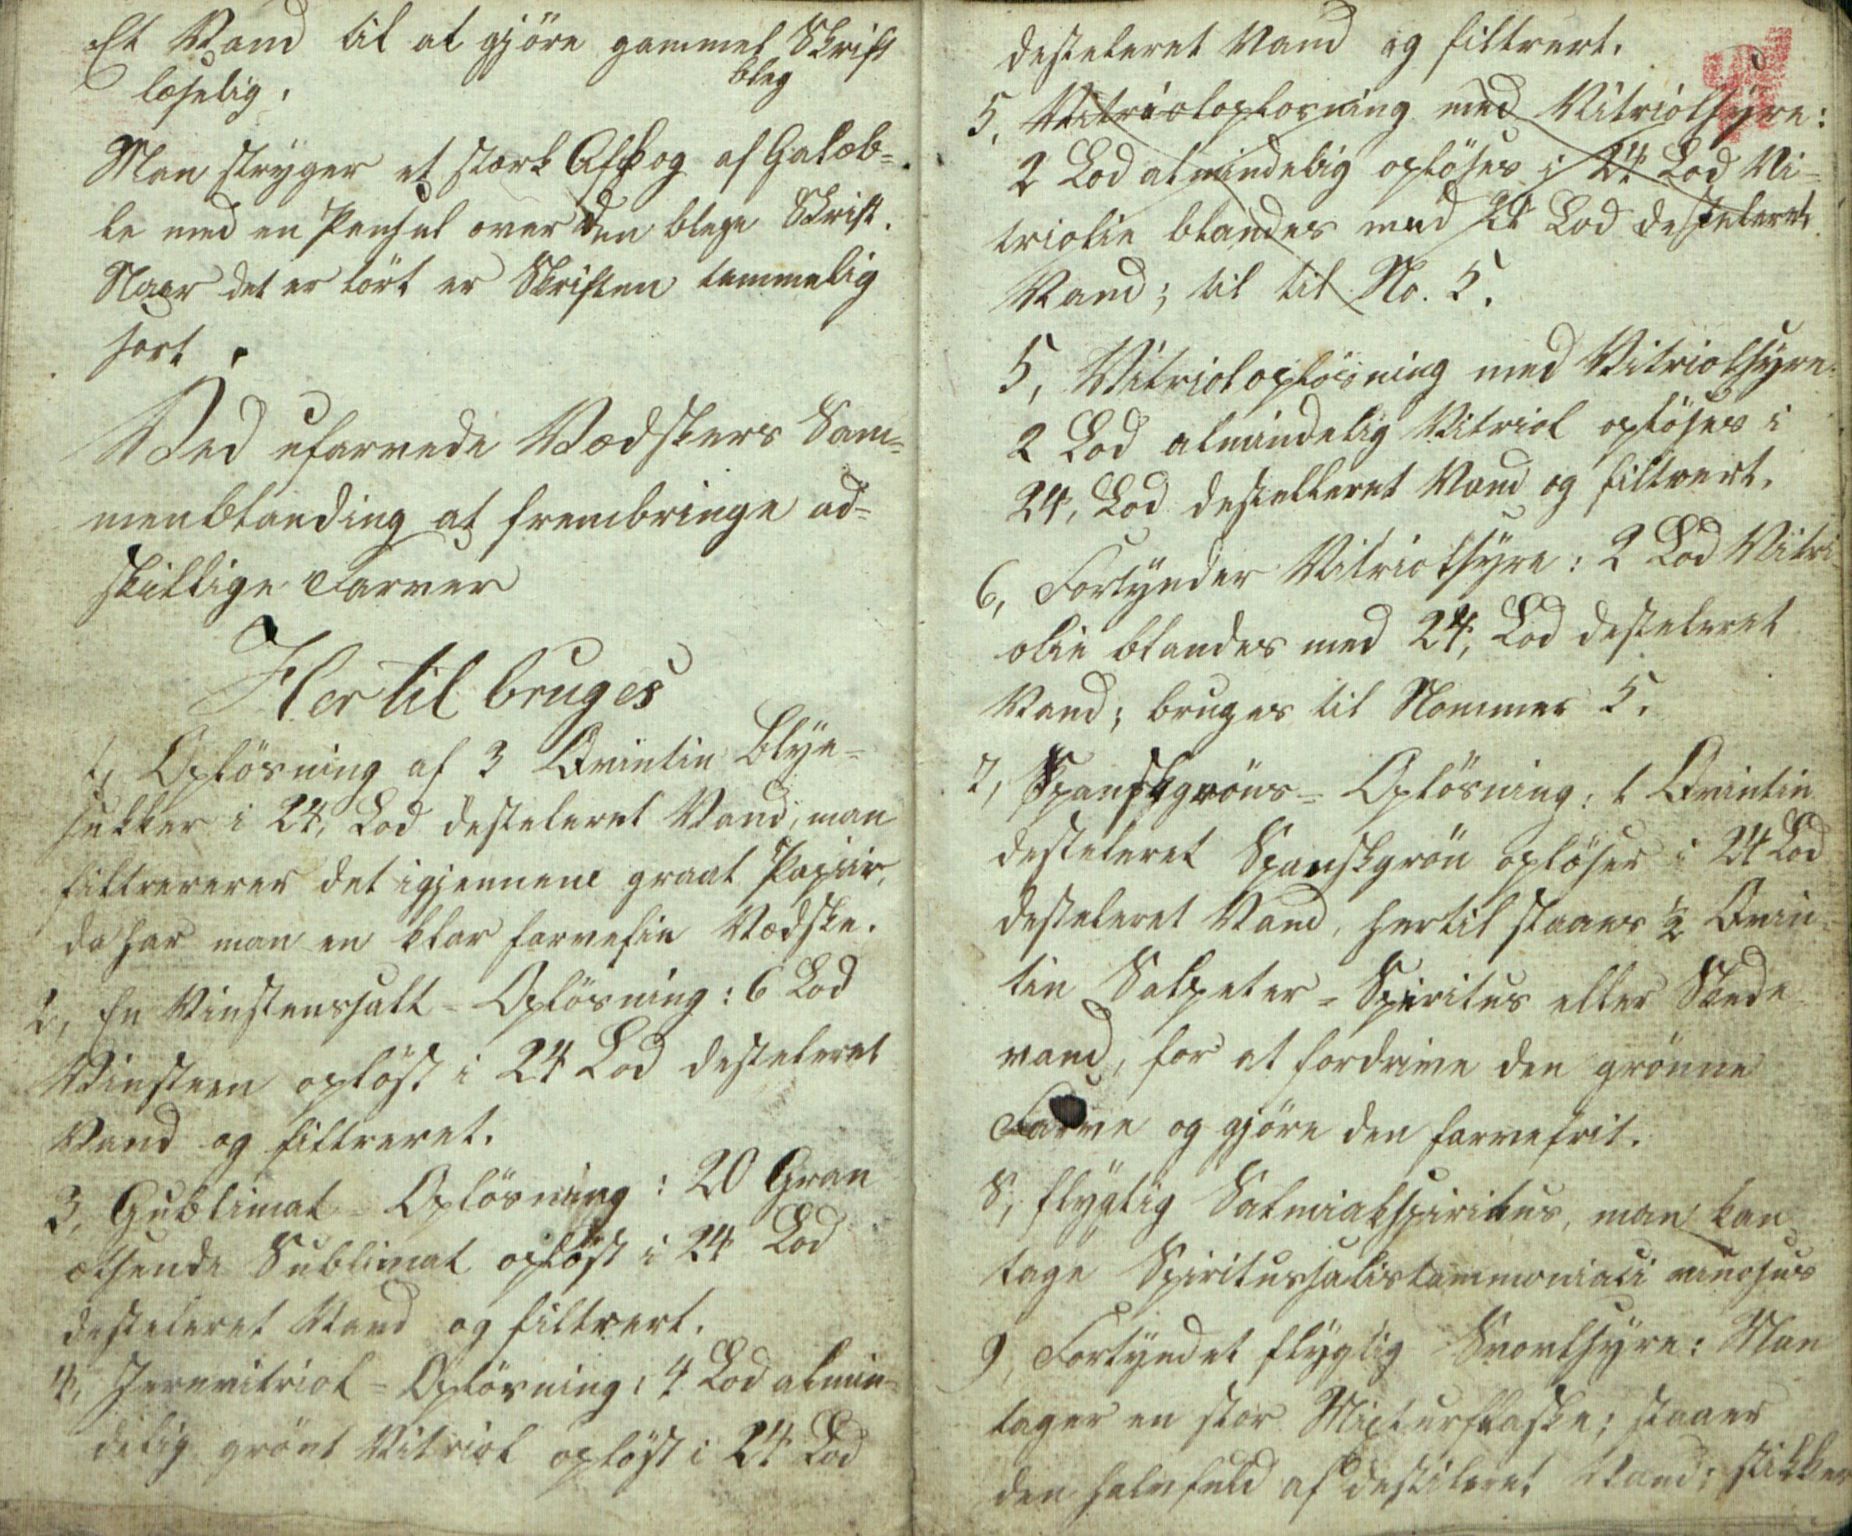 Et Vand til at gjöre gammel Skrift
bleg
læselig.
Man stryger et stærk Afkog af Galæb-
le med en Pensel over den blege Skrift.
Naar det er tört er Skriften temmelig
sort.
Ved ufarvede Vædskers Sam-
menblanding at frembringe ad-
skillige Farver
Her til bruges
1, Oplösning af 3 Qvintin Blye-
sukker i 24, Lod desteleret Vand, man
filtrererer det igjennem graat Papiir,
da har man en klar farvefrie Vædske.
2, En Vinstenssalt-Oplösning: 6 Lod
Vinsteen oplöst i 24 Lod desteleret
Vand og filtreret.
3, Sublimat-Oplösning: 20 Gran
ætsende Sublimat oplöst i 24 Lod
desteleret Vand og filtrert.
4, Jernvitriol-Oplösning: 4 Lod almin-
delig grönt Vitriol oplöst i 24 Lod
desteleret Vand og filtrert.
5, Vitrioloplosning med Vitriolsyre:
2 Lod almindelig oplöses i 24 Lod Vi-
triolie blandes med 24 Lod desteleret
Vand; til til No. 5.
5, Vitrioloplösning med Vitriolsyre.
2 Lod almindelig Vitriol oplöses i
24, Lod destelleret Vand og filtrert.
6, Fortynder Vitriolsyre: 2 Lod Vitri-
olie blandes med 24, Lod desteleret
Vand; bruges til Nommer 5.
7, Spanskgröns-Oplösning: 1 Qvintin
desteleret Spanskgrön oplöser i 24 Lod
desteleret Vand, hertil slaaes ½ Qvin-
tin Salpeter-Spiritus eller Skede
vand, for at fordrive den grönne
Farve og gjöre den farvefrit.
8, flygtig Salmiakspiritus, man kan
tage Spiritussalisammoniaci vinosus
9, Fortyndet flygtig Svovlsyre: Man
tager en stor Mixturflaske; slaaer
den halvfuld af destileret Vand; stikker